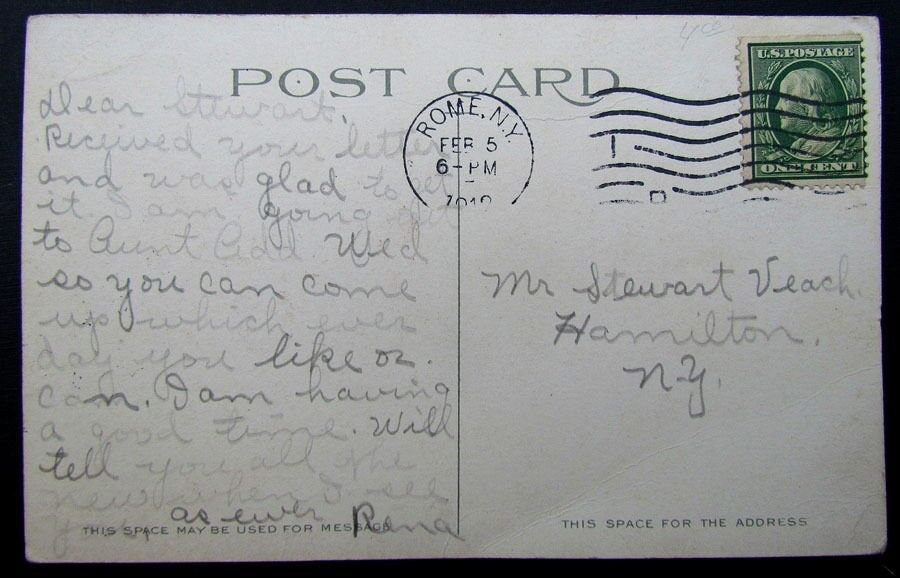 POST CARD
Dear Stewart.
Received your letter
and was glad to get
it. I am going
to Aunt Add Wed
so you can come
up which ever
day you like or
can. I am having
a good time. Will
tell you all the
new when I see
you as ever Rena
THIS SPACE MAY BE USED FOR MESSAGE
ROME, N.Y.
FEB 5
6-PM
U.S. POSTAGE
ONE CENT
Mr Stewart Veach.
Hamilton.
N.Y.
THIS SPACE FOR THE ADDRESS